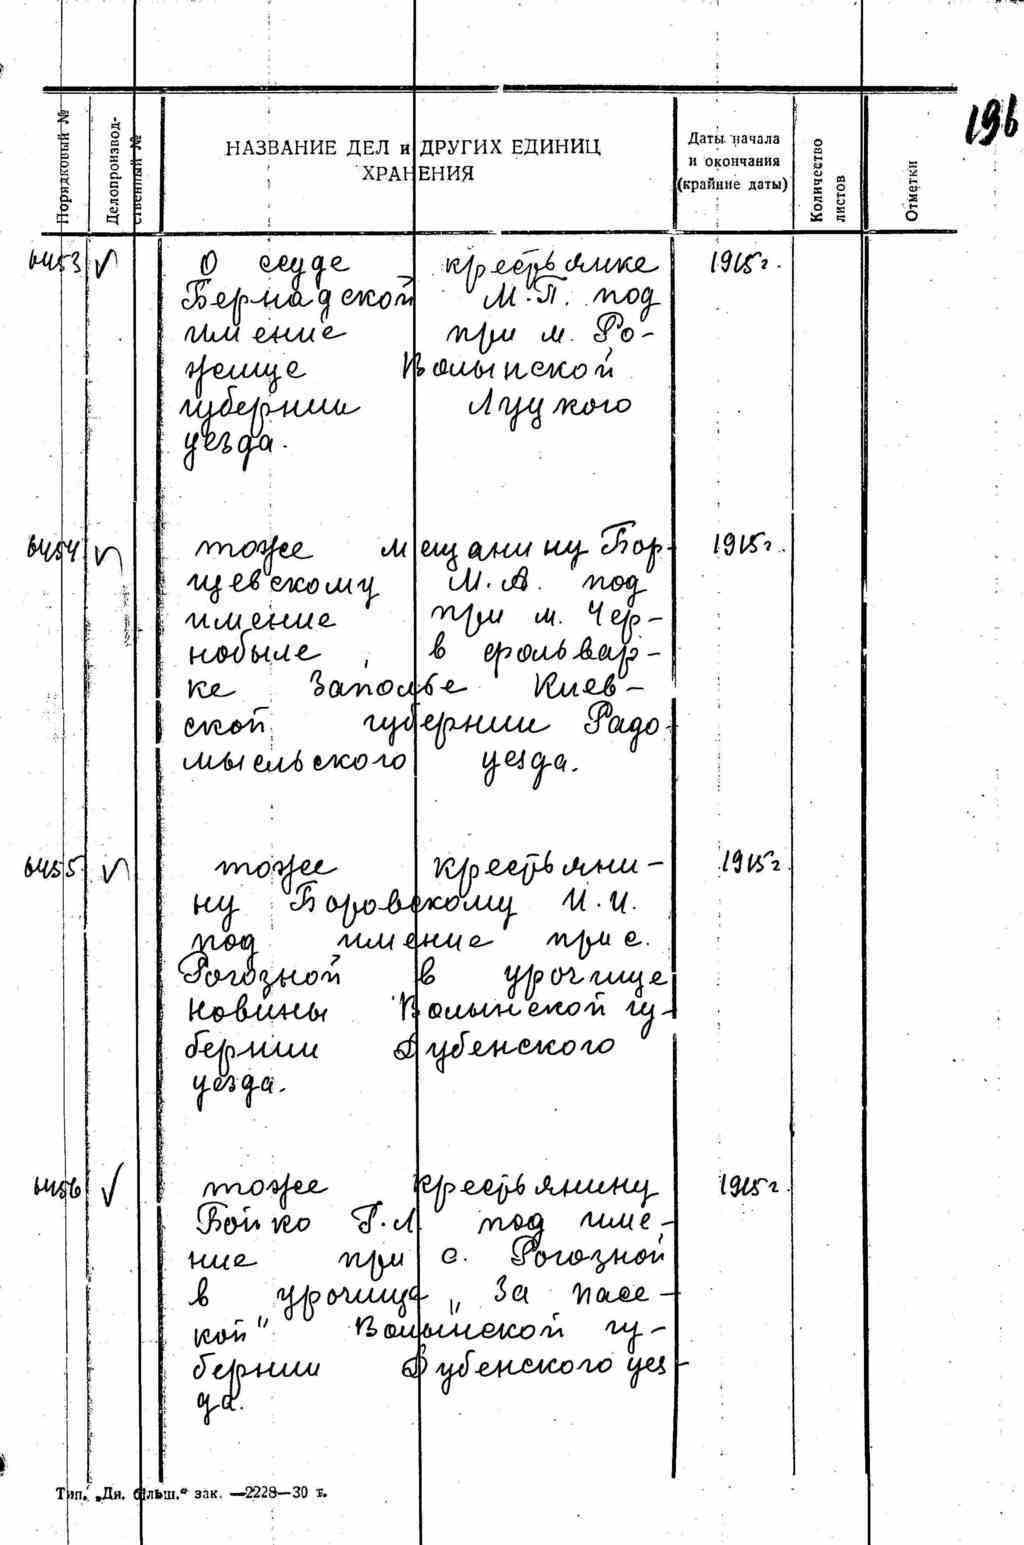 196
Порядковый №
Делопроизвод-
ственный №
НАЗВАНИЕ ДЕЛ и ДРУГИХ ЕДИНИЦ
ХРАНЕНИЯ
Даты начала
и окончания
(крайние даты)
Количество
листов
Отметки
6453 √ О ссуде крестьянке 1915 г.
Бернадской М.П. под
имение при м. Ро-
жище Волынской
губернии Луцкого
уезда.
6454 √ тоже мещанину Бор- 1915 г.
щевскому М.А. под
имение при м. Чер-
нобыле, в фольвар-
ке Заполье Киев-
ской губернии Радо-
мысльского уезда.
6455 √ тоже крестьяни- 1915 г.
ну Боровскому И.И.
под имение при с.
Рогозной в урочище
Новины Волынской гу-
бернии Дубенского
уезда.
6456 √ тоже крестьянину 1915 г.
Бойко Г.Л. под име-
ние при с. Рогозной
в урочище „За пасе-
кой" Волынской гу-
бернии Дубенского уез-
да.
Тип. „Дн. більш." зак. —2228—30 т.